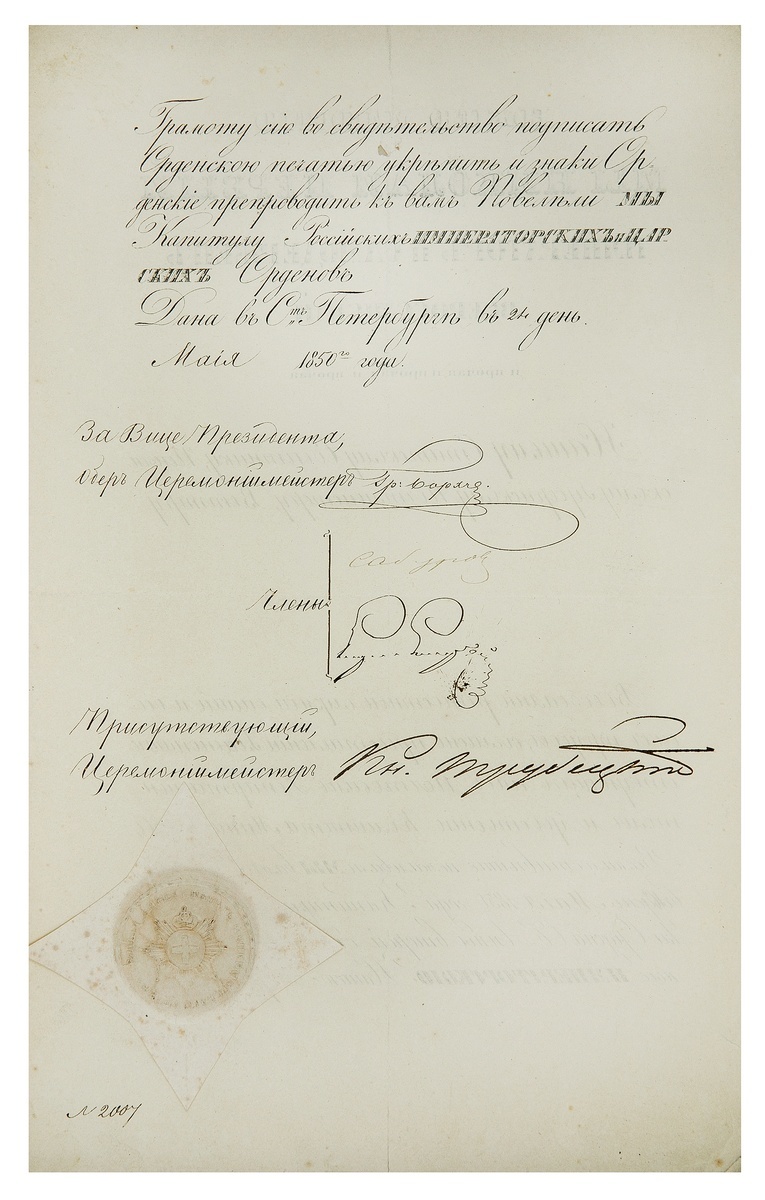 Грамоту сію во свидѣтельство подписать
Орденскою печатью укрѣпить и знаки Ор-
денскіе препроводить къ вамъ Повелѣли МЫ
Капитулу Россійскихъ ИМПЕРАТОРСКИХЪ и ЦАР
СКИХЪ Орденовъ
Дана въ Стъ Петербургѣ въ 24 день.
Маія 1850го года.
За Вице Президента,
Оберъ Церемоніймейстеръ Гр: Борхъ.
Сабуровъ
Члены
Присутствующій,
Церемоніймейстеръ Кн. Трубецкой
N 2007